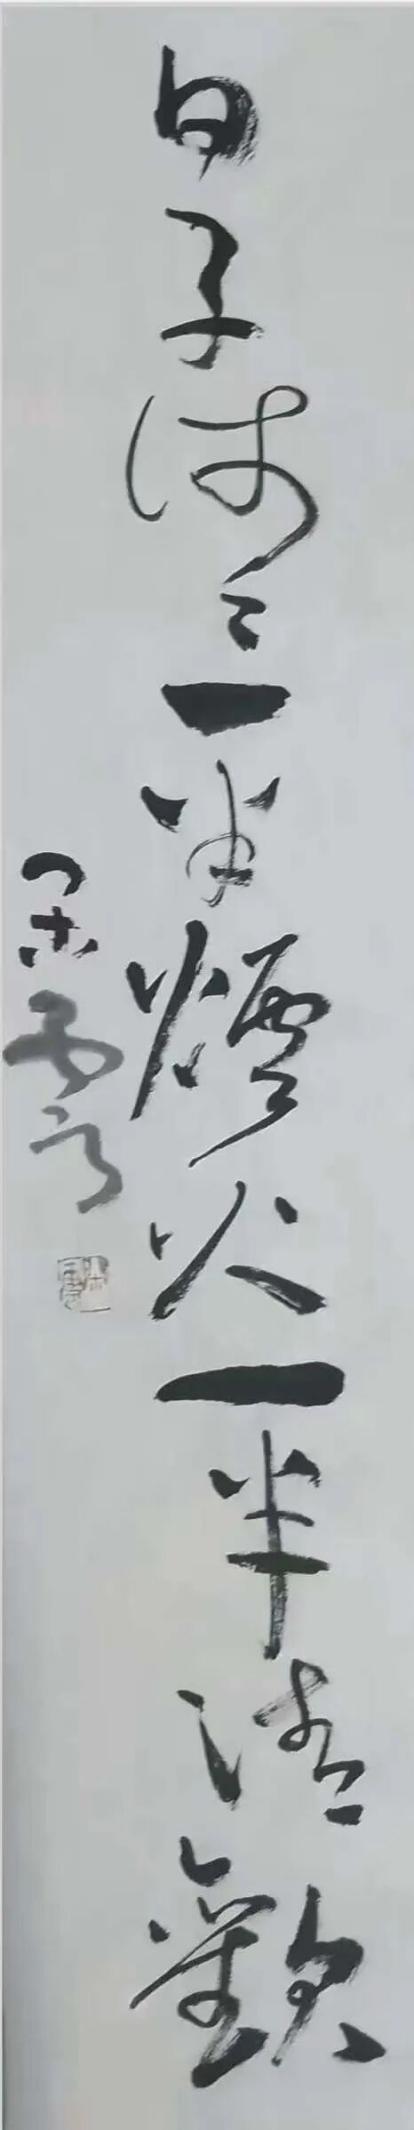 日子沸沸一半煙火一半清歡